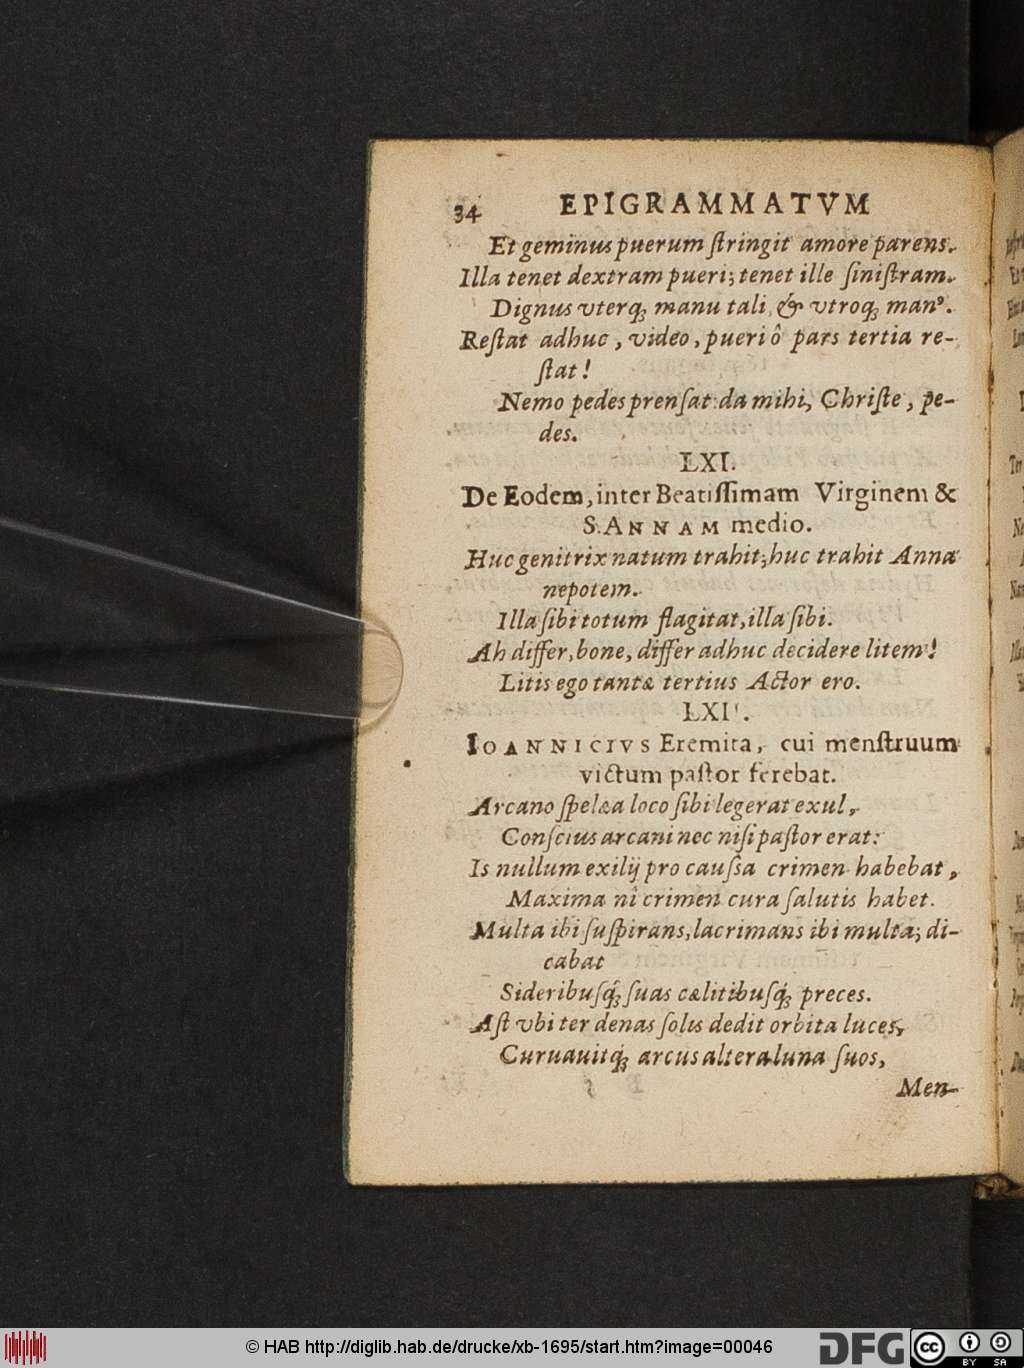 34 EPIGRAMMATVM
Et geminus puerum ſtringit amore parens.
Illa tenet dextram pueri; tenet ille ſiniſtram.
Dignus vterq́ꝫ manu tali, & vtroq́ꝫ manꝰ.
Reſtat adhuc, video, pueri ô pars tertia re-
ſtat!
Nemo pedes prenſat: da mihi, Chriſte, pe-
des.
LXI.
De Eodem, inter Beatiſſimam Virginem &
S. ANNAM medio.
Huc genitrix natum trahit; huc trahit Anna
nepotem.
Illa ſibi totum flagitat, illa ſibi.
Ah differ, bone, differ adhuc decidere litem!
Litis ego tantæ tertius Actor ero.
LXII.
IOANNICIVS Eremita, cui menſtruum
victum paſtor ferebat.
Arcano ſpelæa loco ſibi legerat exul,
Conſcius arcani nec niſi paſtor erat:
Is nullum exilij pro cauſsa crimen habebat,
Maxima nî crimen cura ſalutis habet.
Multa ibi ſuſpirans, lacrimans ibi multa; di-
cabat
Sideribuſq́ꝫ ſuas cælitibuſq́ꝫ preces.
Aſt vbi ter denas ſolis dedit orbita luces,
Curuauitq́ꝫ arcus altera luna ſuos,
Men-
© HAB http://diglib.hab.de/drucke/xb-1695/start.htm?image=00046
DFG
cc BY SA